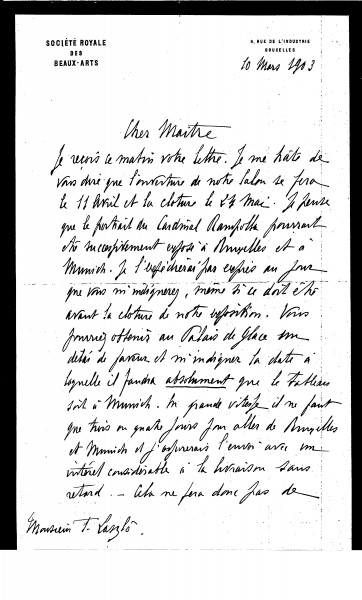 SOCIÉTÉ ROYALE
DES
BEAUX-ARTS
9, RUE DE L'INDUSTRIE
BRUXELLES
10 Mars 1903
Cher Maître
Je reçois ce matin votre lettre. Je me hâte de
vous dire que l'ouverture de notre Salon se fera
le 11 Avril et la cloture le 24 Mai. Je pense
que le portrait du Cardinal Rampolla pourrait
être successivement exposé à Bruxelles et à
Munich. Je l'expédierai pas exprès au jour
que vous m'indiquerez, même si ce doit être
avant la cloture de notre exposition. Vous
pourriez obtenir au Palais de Glace un
délai de faveur et m'indiquer la date à
laquelle il faudra absolument que le tableau
soit à Munich. En grande vitesse il ne faut
que trois ou quatre jours pour aller de Bruxelles
et Munich et j'assurerais l'envoi avec un
intérêt considérable à la livraison sans
retard. — Cela ne sera donc pas de
Monsieur F. Laszlò.